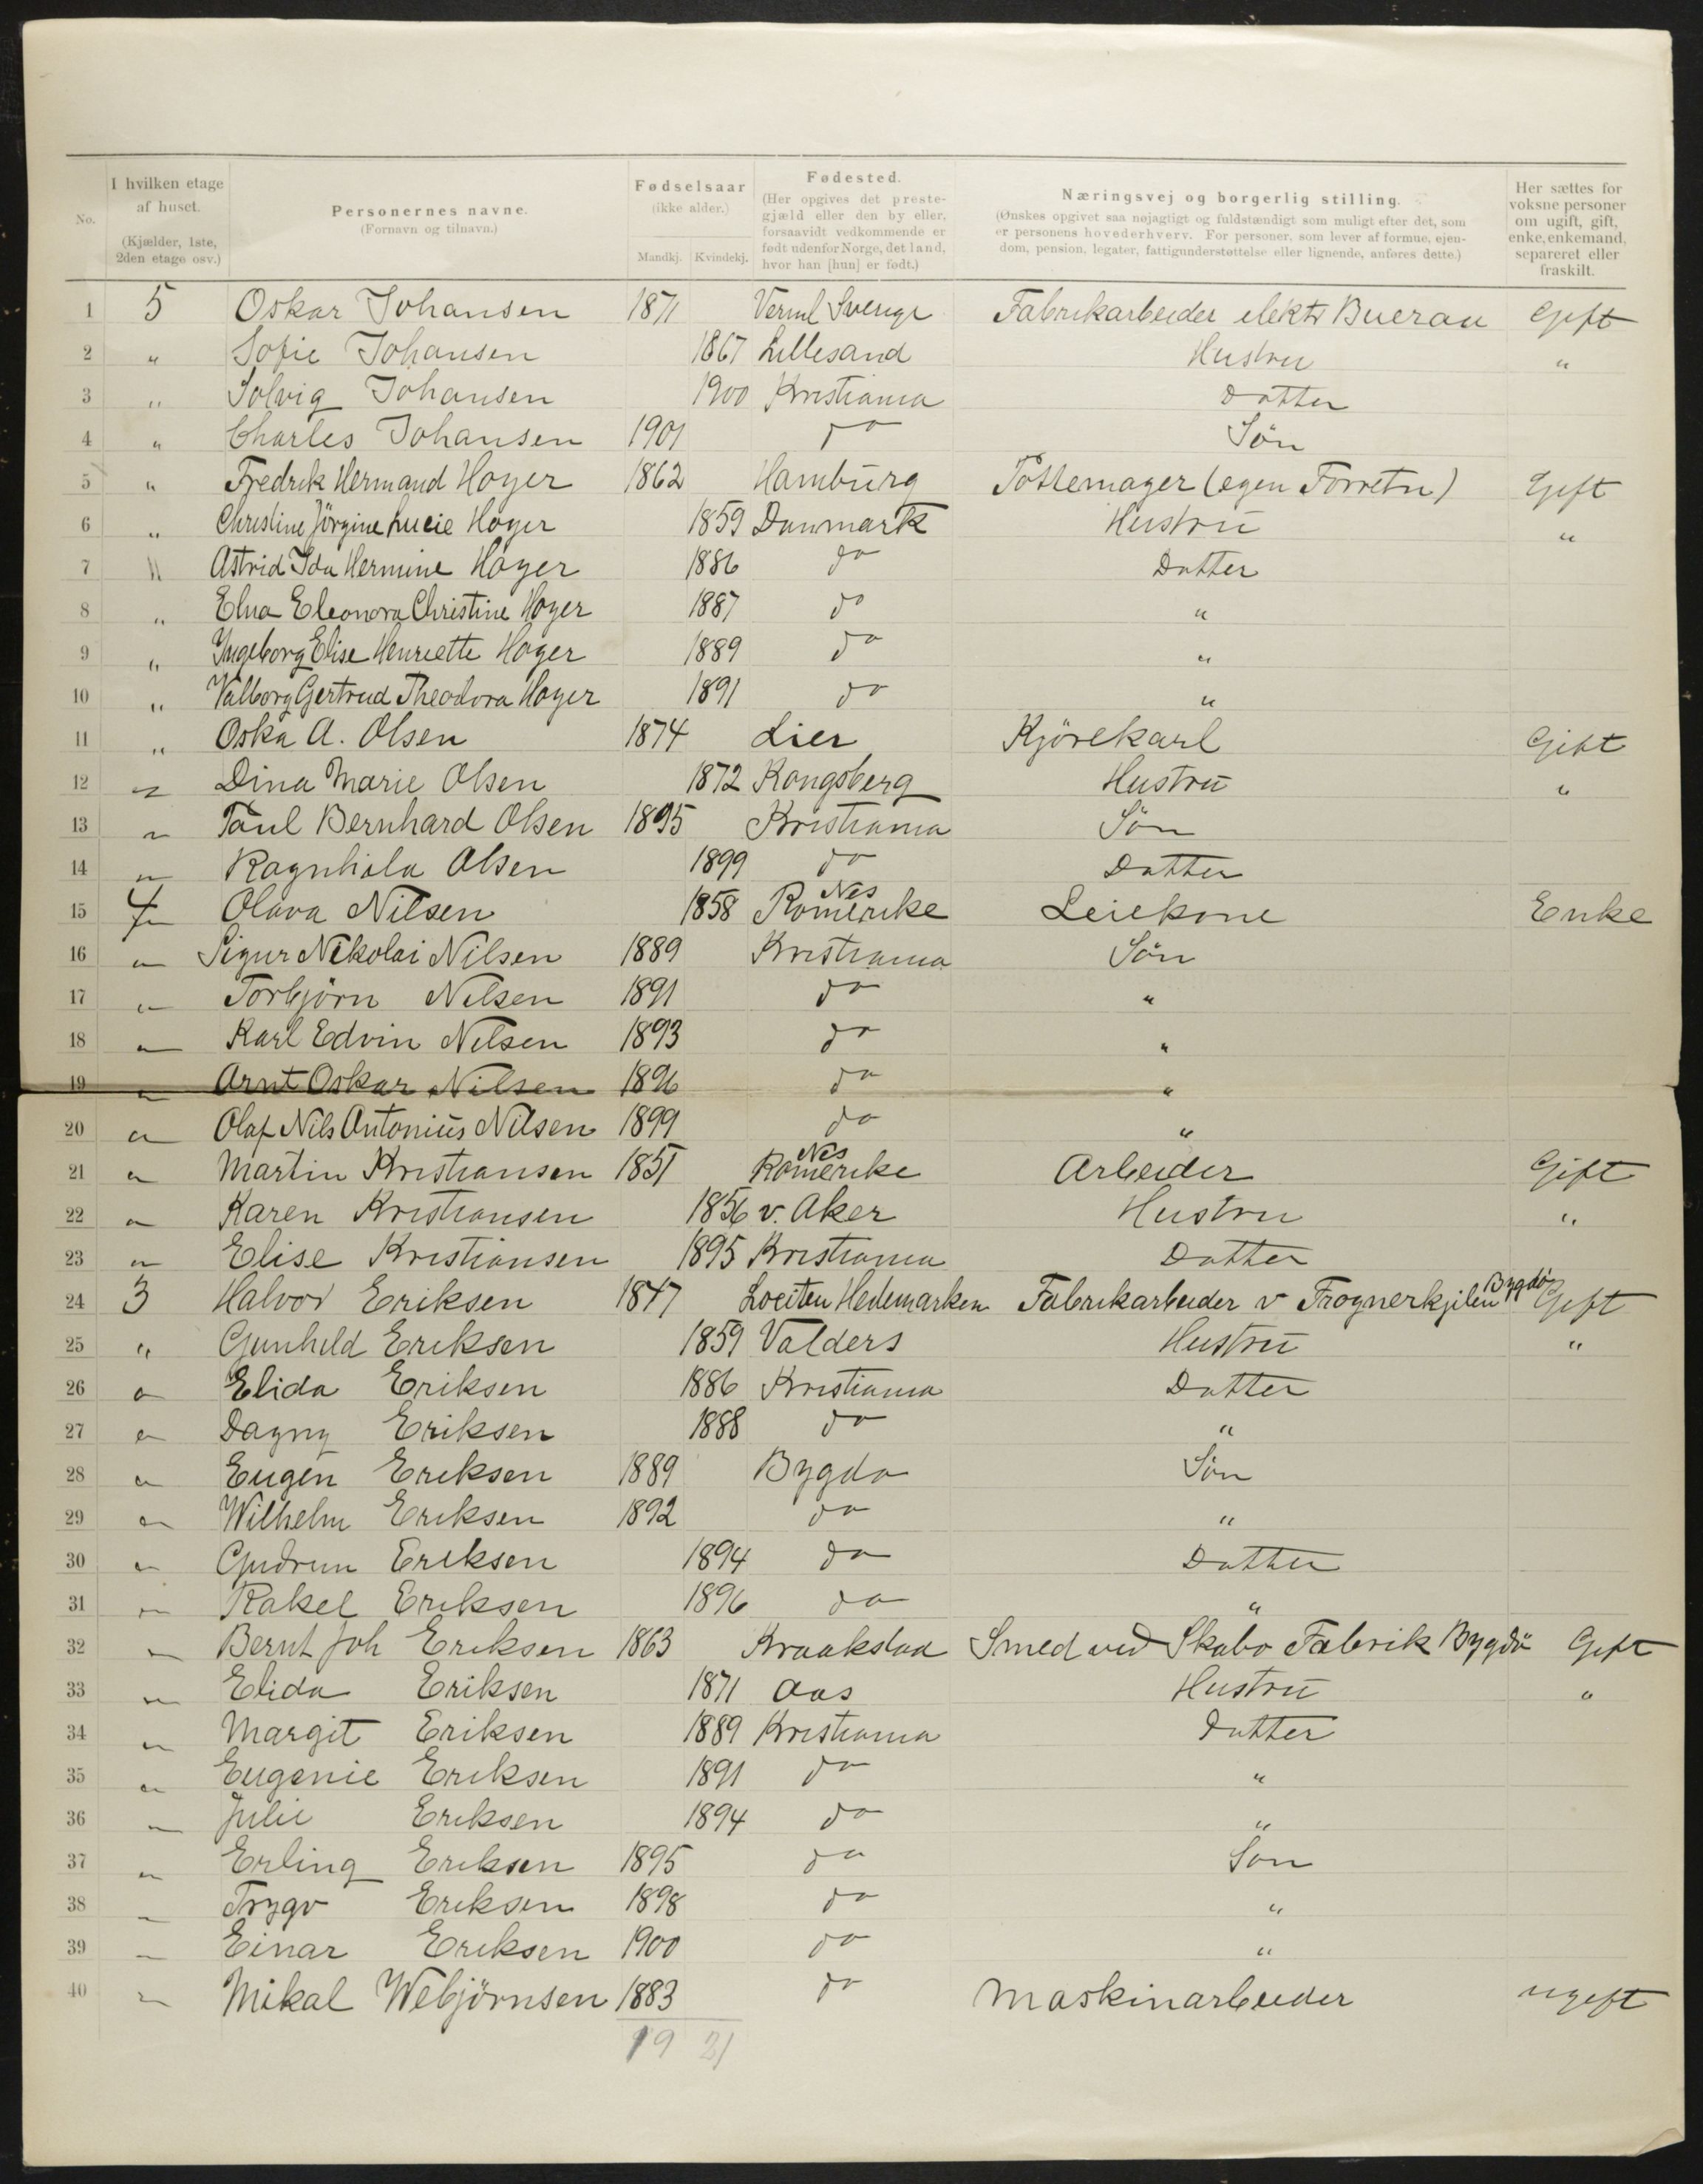 No.
I hvilken etage af huset. (Kjælder, 1ste, 2den etage osv.)
Personernes navne. (Fornavn og tilnavn.)
Fødselsaar (ikke alder.) Mandkj. Kvindekj.
Fødested. (Her opgives det prestegjæld eller den by eller, forsaavidt vedkommende er født udenfor Norge, det land, hvor han [hun] er født.)
Næringsvej og borgerlig stilling. (Ønskes opgivet saa nøjagtigt og fuldstændigt som muligt efter det, som er personens hovederhverv. For personer, som lever af formue, ejendom, pension, legater, fattigunderstøttelse eller lignende, anføres dette.)
Her sættes for voksne personer om ugift, gift, enke, enkemand, separeret eller fraskilt.
1 5 Oskar Johansen 1871 Verml Sverige Fabrikarbeider elektr Buerau Gift
2 " Sofie Johansen 1867 Lillesand Hustru "
3 " Solvig Johansen 1900 Kristiania Datter
4 " Charles Johansen 1901 do Sön
5 " Fredrik Hermand Hoyer 1862 Hamburg Pottemager (egen Forretn) Gift
6 " Christine Jörgine Lucie Hoyer 1859 Danmark Hustru "
7 " Astrid Ida Hermine Hoyer 1886 do Datter
8 " Elna Eleonora Christine Hoyer 1887 do "
9 " Yngeborg Elise Henriette Hoyer 1889 do "
10 " Valborg Gertrud Theodora Hoyer 1891 do "
11 " Oska A. Olsen 1874 Lier Kjörekarl Gift
12 " Dina Marie Olsen 1872 Kongsberg Hustru "
13 " Paul Bernhard Olsen 1895 Kristiania Sön
14 " Ragnhild Olsen 1899 do Datter
15 4 Olava Nilsen 1858 Nes Romerike Leiekone Enke
16 " Sigur Nikolai Nilsen 1889 Kristiania Sön
17 " Torbjörn Nilsen 1891 do "
18 " Karl Edvin Nilsen 1893 do "
19 " Arnt Oskar Nilsen 1896 do "
20 " Olaf Nils Antonius Nilsen 1899 do "
21 " Martin Kristiansen 1851 Nes Romerike Arbeider Gift
22 " Karen Kristiansen 1856 v. Aker Hustru "
23 " Elise Kristiansen 1895 Kristiania Datter
24 3 Halvor Eriksen 1847 Loeiten Hedemarken Fabrikarbeider v Frognerkjilen Bygdö Gift
25 " Gunhild Eriksen 1859 Valders Hustru "
26 " Elida Eriksen 1886 Kristiania Datter
27 " Dagny Eriksen 1888 do "
28 " Eugen Eriksen 1889 Bygdo Sön
29 " Wilhelm Eriksen 1892 do "
30 " Gudrun Eriksen 1894 do Datter
31 " Rakel Eriksen 1896 do "
32 " Bernt Joh Eriksen 1863 Kraakstad Smed ved Skabo Fabrik Bygdö Gift
33 " Elida Eriksen 1871 Aas Hustru "
34 " Margit Eriksen 1889 Kristiania Datter
35 " Eugenie Eriksen 1891 do "
36 " Julie Eriksen 1894 do "
37 " Erling Eriksen 1895 do Son
38 " Trygv Eriksen 1898 do "
39 " Einar Eriksen 1900 do "
40 " Mikal Webjörnsen 1883 do Maskinarbeider ugift
19 21